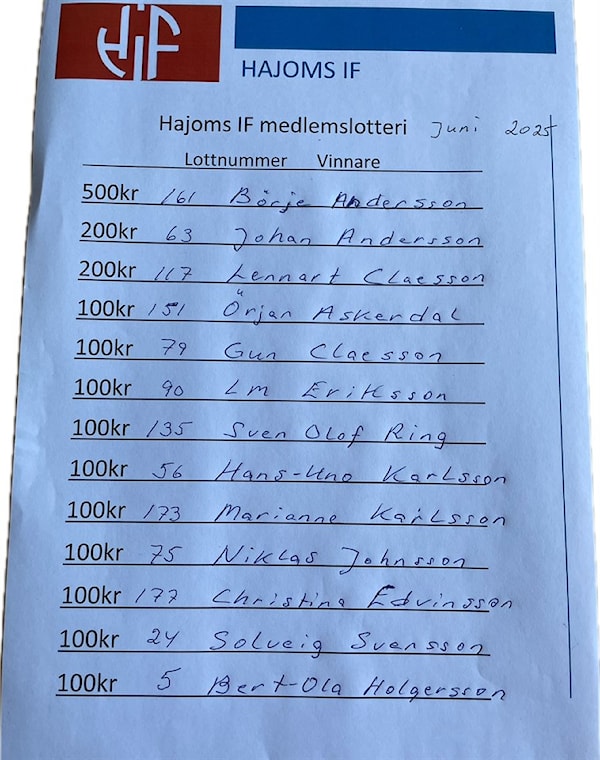 HIF
HAJOMS IF
Hajoms IF medlemslotteri Juni 2025
Lottnummer Vinnare
500kr 161 Börje Andersson
200kr 63 Johan Andersson
200kr 117 Lennart Claesson
100kr 151 Örjan Askerdal
100kr 79 Gun Claesson
100kr 90 LM Eriksson
100kr 135 Sven Olof Ring
100kr 56 Hans-Uno Karlsson
100kr 173 Marianne Karlsson
100kr 75 Niklas Johnsson
100kr 177 Christina Edvinsson
100kr 24 Solveig Svensson
100kr 5 Bert-Ola Holgersson